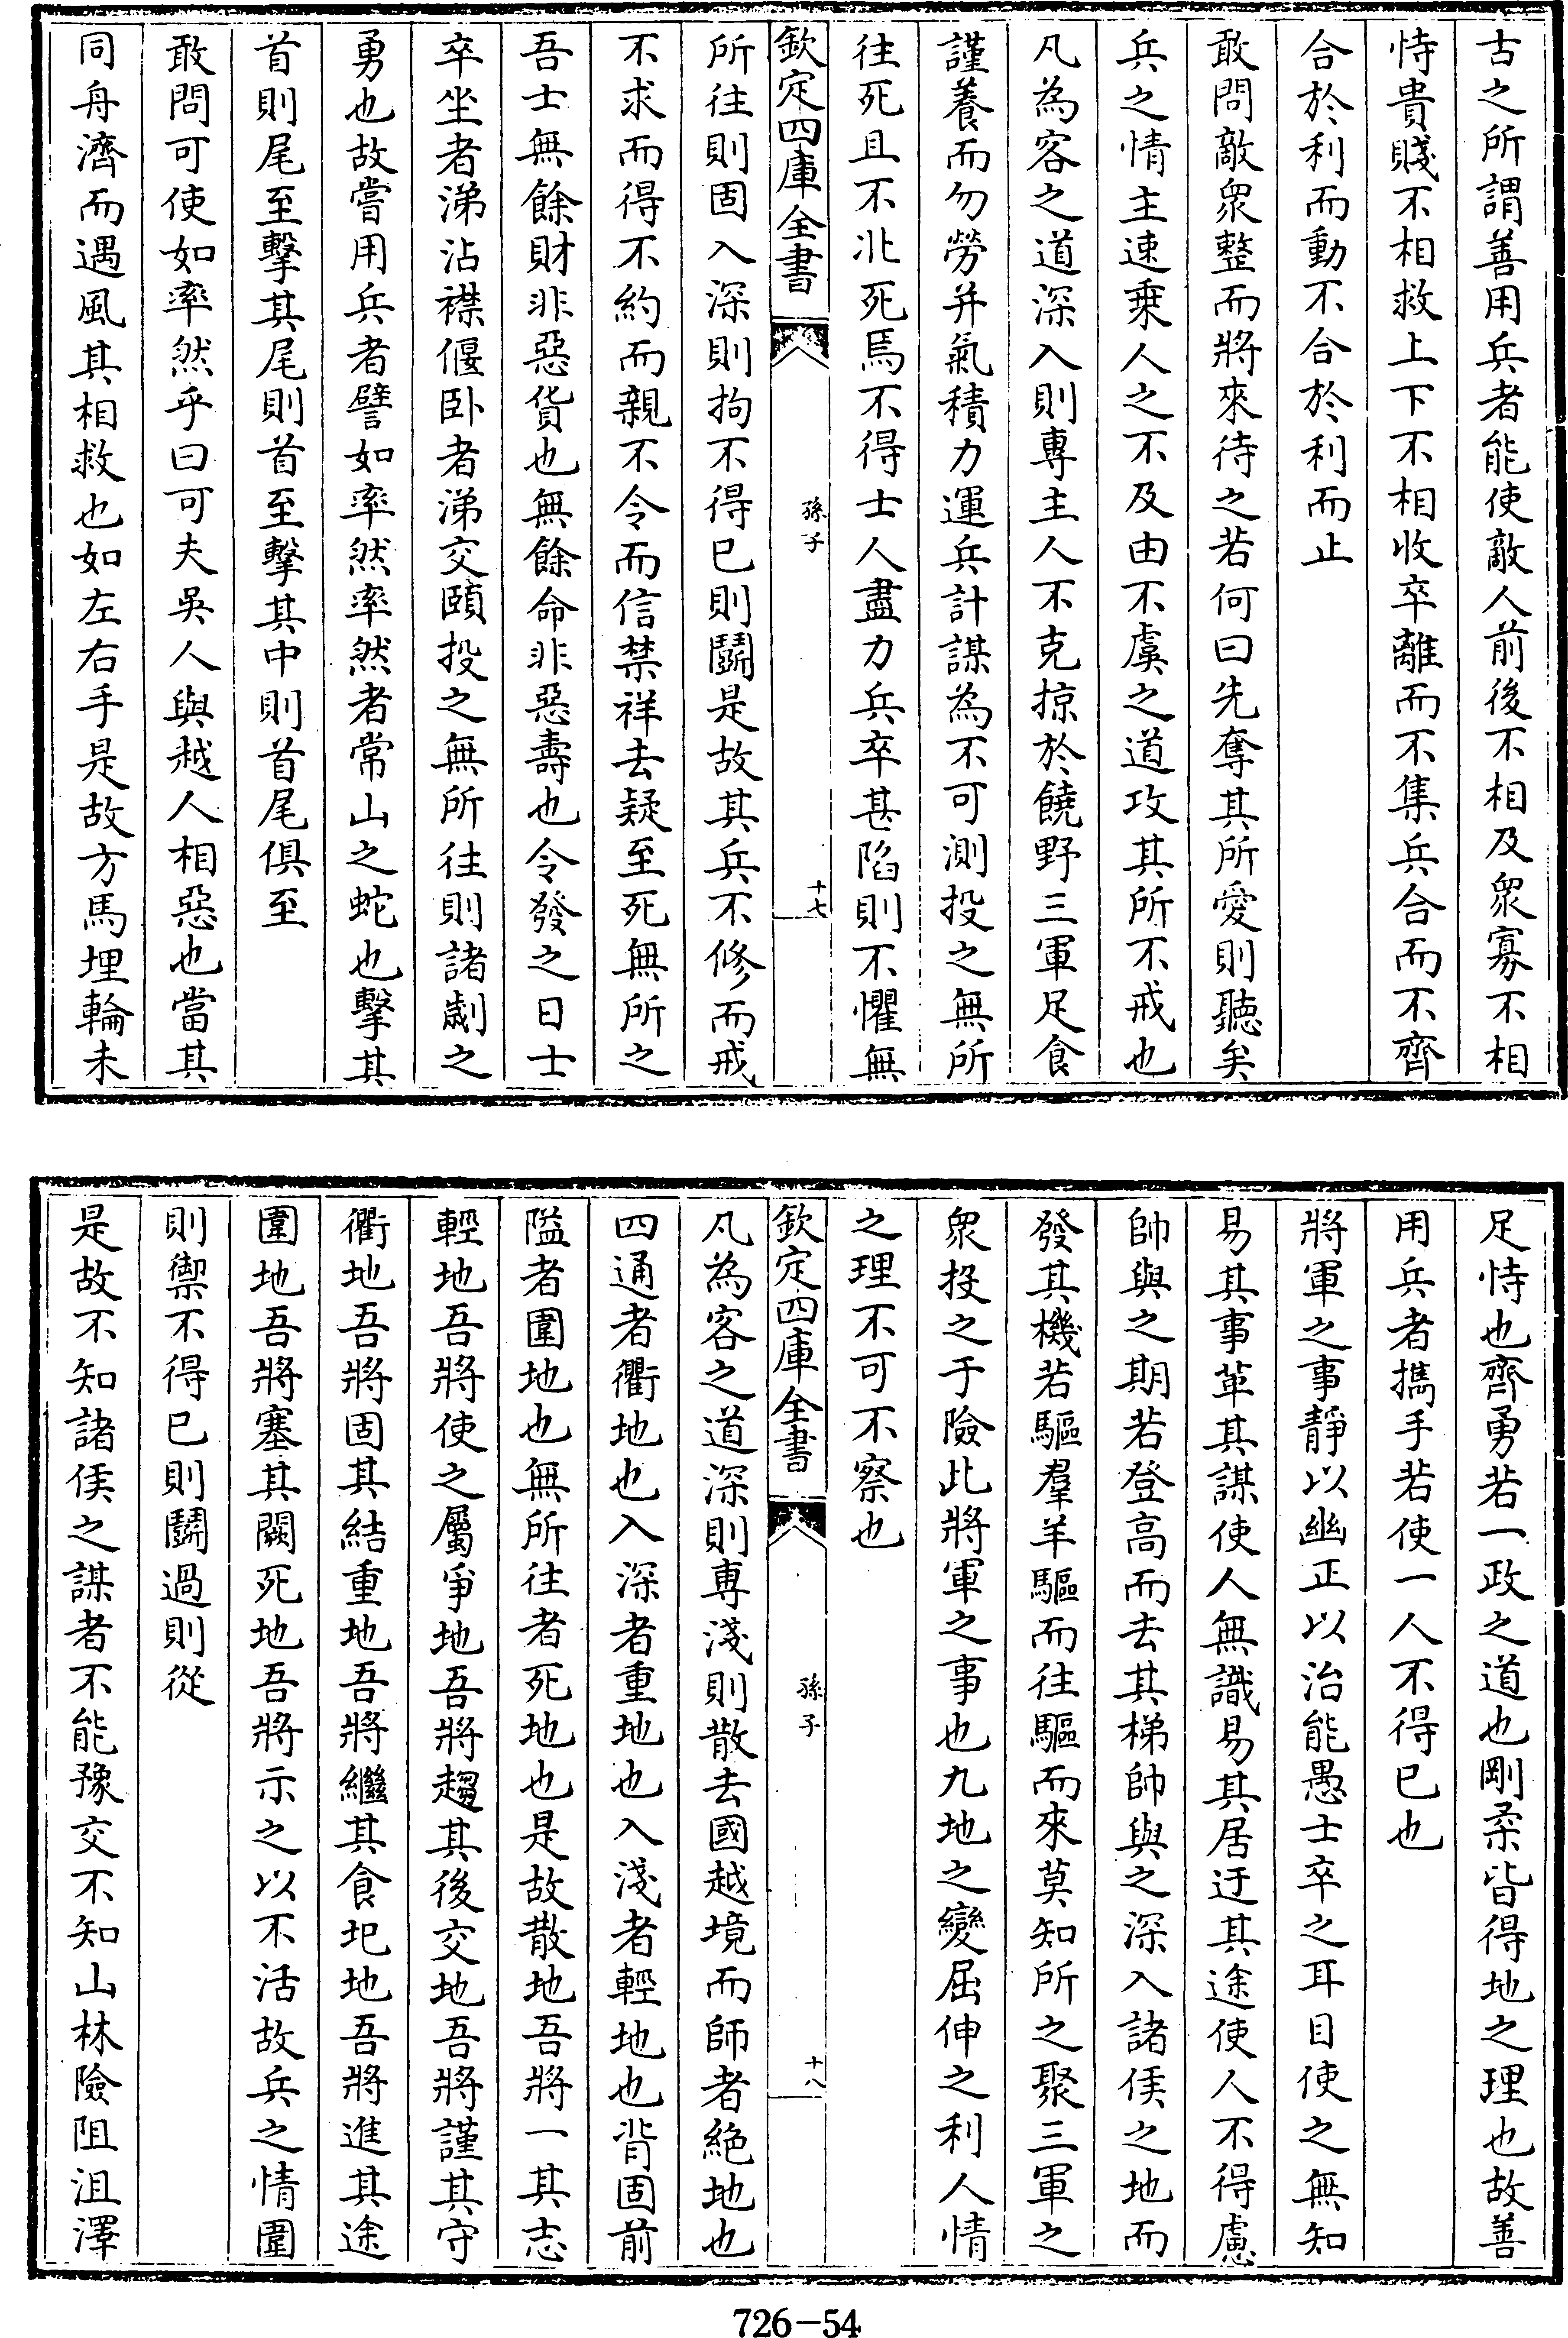 古之所謂善用兵者能使敵人前後不相及衆寡不相
恃貴賤不相救上下不相收卒離而不集兵合而不齊
合於利而動不合於利而止
敢問敵衆整而將來待之若何曰先奪其所愛則聽矣
兵之情主速乗人之不及由不虞之道攻其所不戒也
凡為客之道深入則專主人不克掠於饒野三軍足食
謹養而勿勞并氣積力運兵計謀為不可測投之無所
往死且不北死焉不得士人盡力兵卒甚陷則不懼無
欽定四庫全書
孫子
十七
所往則固入深則拘不得已則鬭是故其兵不修而戒
不求而得不約而親不令而信禁祥去疑至死無所之
吾士無餘財非惡貨也無餘命非惡壽也令發之日士
卒坐者涕沾襟偃卧者涕交頤投之無所往則諸劌之
勇也故嘗用兵者譬如率然率然者常山之蛇也擊其
首則尾至擊其尾則首至擊其中則首尾俱至
敢問可使如率然乎曰可夫吳人與越人相惡也當其
同舟濟而遇風其相救也如左右手是故方馬埋輪未
足恃也齊勇若一政之道也剛柔皆得地之理也故善
用兵者攜手若使一人不得已也
將軍之事靜以幽正以治能愚士卒之耳目使之無知
易其事革其謀使人無識易其居迂其途使人不得慮
帥與之期若登高而去其梯帥與之深入諸侯之地而
發其機若驅羣羊驅而往驅而來莫知所之聚三軍之
衆投之于險此將軍之事也九地之變屈伸之利人情
之理不可不察也
欽定四庫全書
孫子
十八
凡為客之道深則專淺則散去國越境而師者絶地也
四通者衢地也入深者重地也入淺者輕地也背固前
隘者圍地也無所往者死地也是故散地吾將一其志
輕地吾將使之屬爭地吾將趨其後交地吾將謹其守
衢地吾將固其結重地吾將繼其食圯地吾將進其途
圍地吾將塞其闕死地吾將示之以不活故兵之情圍
則禦不得已則鬭過則從
是故不知諸侯之謀者不能豫交不知山林險阻沮澤
726-54